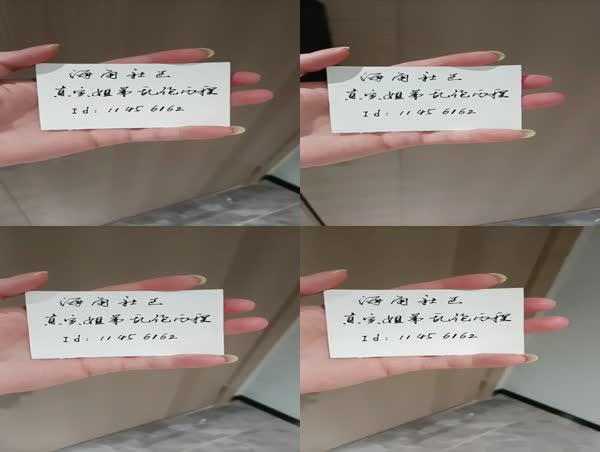 海角社区
真实姐弟乱伦历程
Id: 11456162
海角社区
真实姐弟乱伦历程
Id: 11456162
海角社区
真实姐弟乱伦历程
Id: 11456162
海角社区
真实姐弟乱伦历程
Id: 11456162